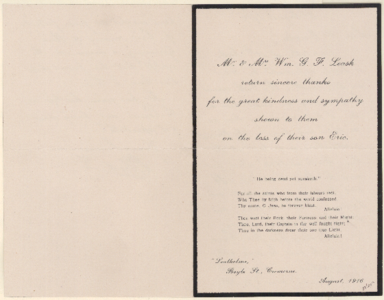 Mr. & Mrs. Wm. G. F. Leash
return sincere thanks
for the great kindness and sympathy
shown to them
on the loss of their son Eric.
"He being dead yet speaketh"
For all the saints who from their labours rest,
Who Thee by faith before the world confessed
Thy name O Jesu, be forever blest.
Alleluia.
Thou wast their Rock, their Fortress and their Might
Thou, Lord, their Captain in the well fought fight;
Thou in the darkness drear their one true Light.
Alleluia!
St., Cremorne.
August, 1916